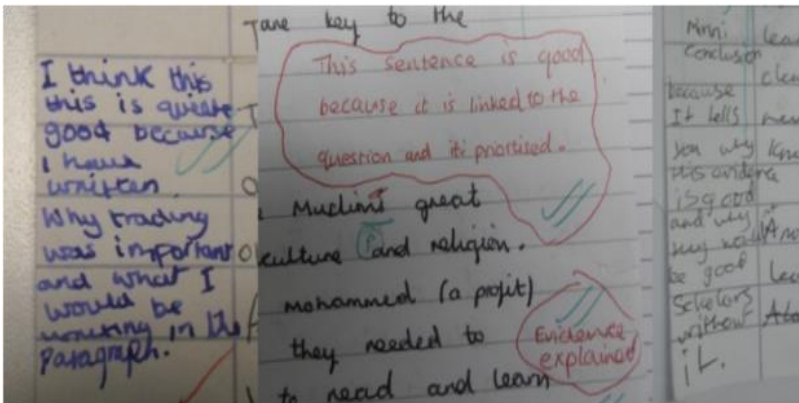 I think this
this is quiete
good because
I have
written
Why trading
was important
and what I
would be
writing in the
Paragraph.
Tane key to the
This sentence is good
because it is linked to the
question and its priortised.
Muclims great
culture and religion.
mohammed (a profit)
they needed to
to read and learn
Evidence
explained
Minni
Conclusion
because
It tells
you why
this evidence
is good
and why
would
be good
Scholars
without
it.